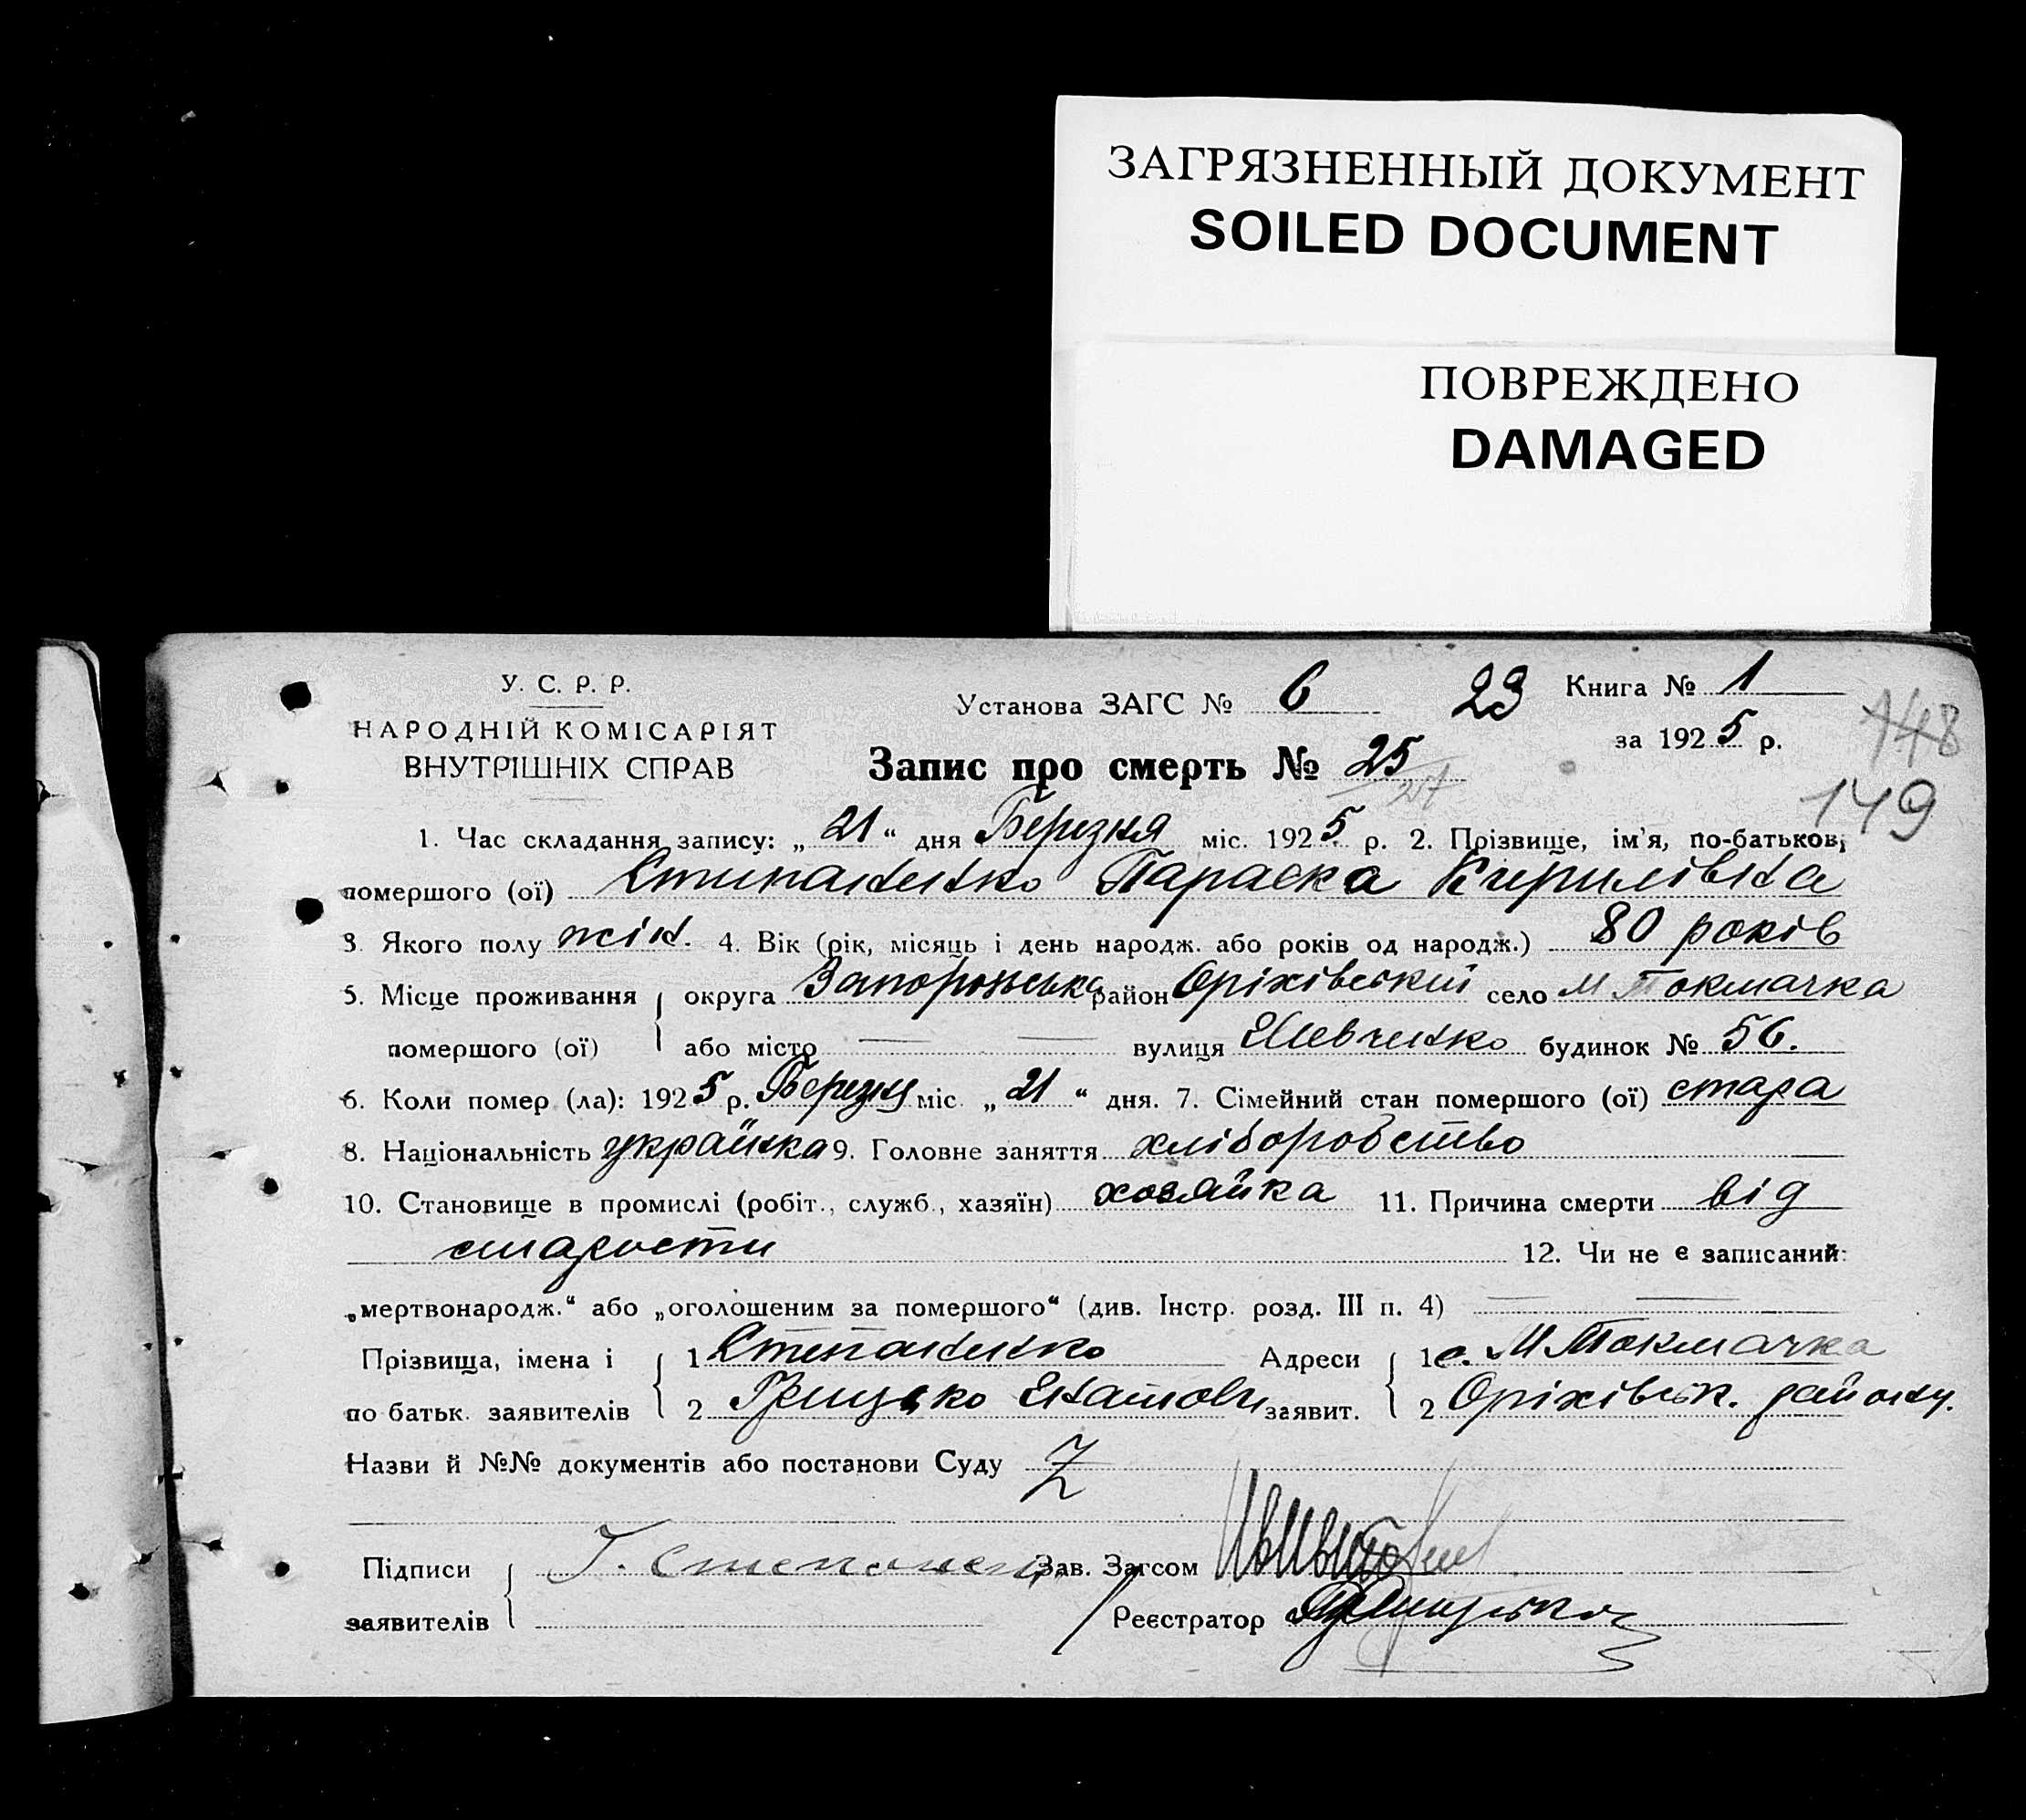 ЗАГРЯЗНЕННЫЙ ДОКУМЕНТ
SOILED DOCUMENT
ПОВРЕЖДЕНО
DAMAGED
У. С. Р. Р.
НАРОДНІЙ КОМІСАРІЯТ
ВНУТРІШНІХ СПРАВ
Установа ЗАГС № 6 23 Книга № 1
за 1925 р.
148
149
Запис про смерть № 25
1. Час складання запису: „21“ дня Березня міс. 1925 р. 2. Прізвище, ім'я, по-батькові
помершого (ої) Степаненко Параска Кирилівна
3. Якого полу жін. 4. Вік (рік, місяць і день народж. або років од народж.) 80 років
5. Місце проживання округа Запорожська район Оріхівський село М Токмачка
помершого (ої) або місто — — вулиця Шевченко будинок № 56.
6. Коли помер (ла): 1925 р. Березня міс. „21“ дня. 7. Сімейний стан помершого (ої) стара
8. Національність українка 9. Головне заняття хліборобство
10. Становище в промислі (робіт., служб., хазяїн) хозяйка 11. Причина смерти від
старости 12. Чи не є записаний:
„мертвонародж.“ або „оголошеним за помершого“ (див. Інстр. розд. III п. 4) — —
Прізвища, імена і 1 Степаненко Адреси 1 с. М Токмачка
по батьк. заявителів 2 Грицько заявит. 2 Оріхівськ. району.
Назви й №№ документів або постанови Суду Z
Підписи Г. Степанен Зав. Загсом
заявителів Реєстратор